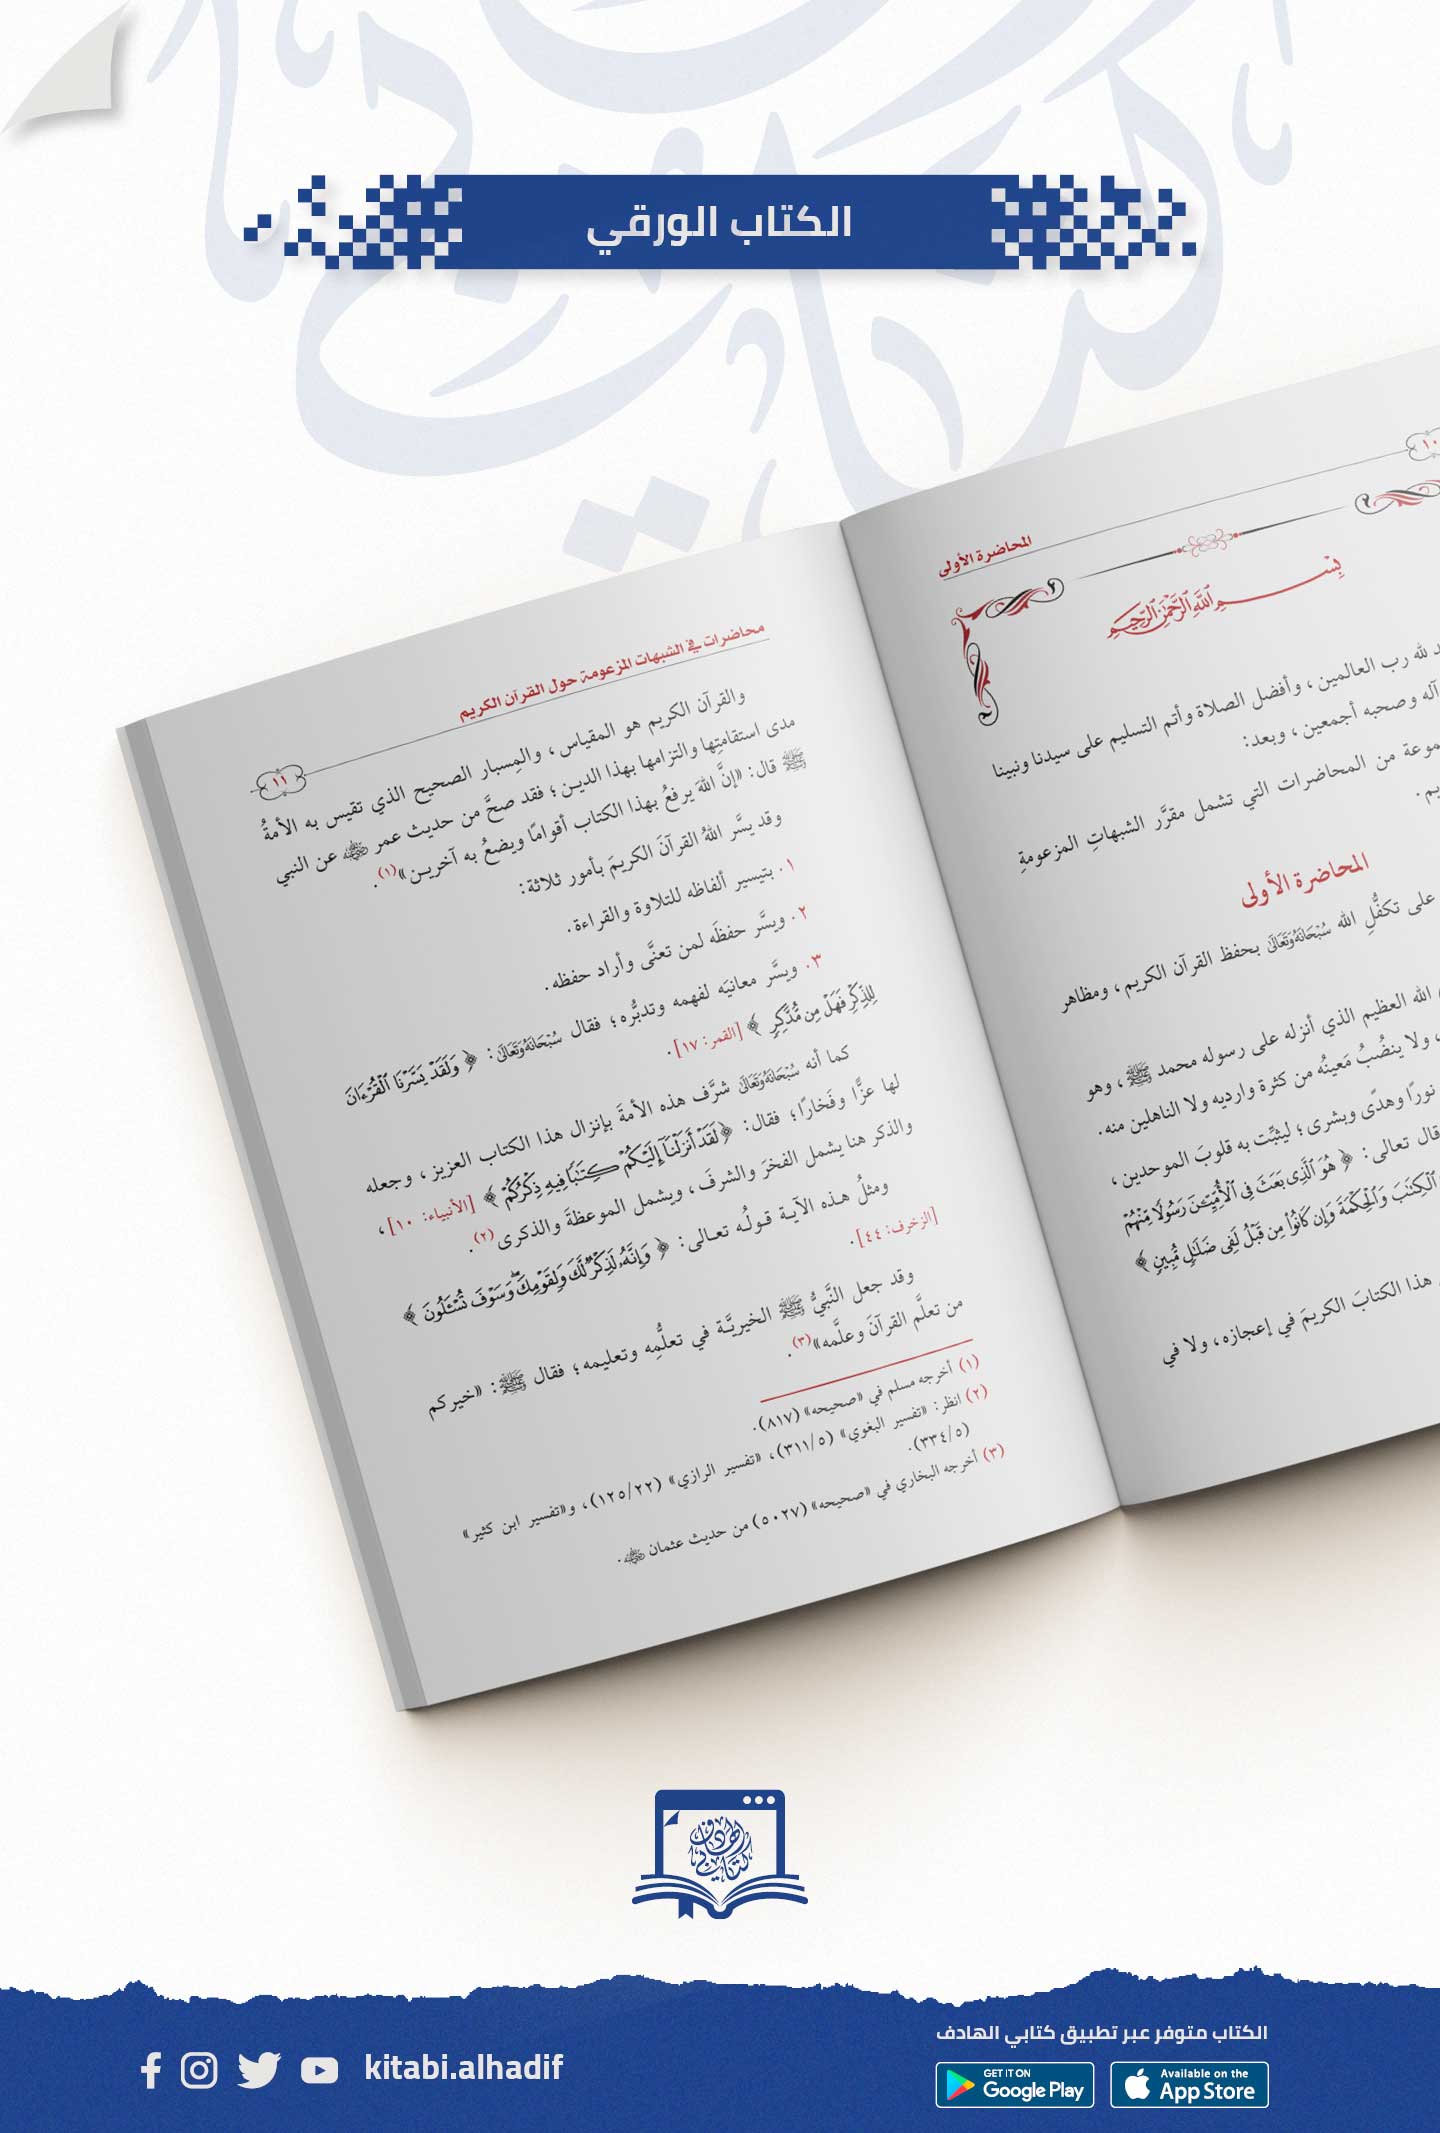 الكتاب الورقي
١٠
المحاضرة الأولى
بِسْمِ اللَّهِ الرَّحْمَٰنِ الرَّحِيمِ
لله رب العالمين، وأفضل الصلاة وأتم التسليم على سيدنا ونبينا
آله وصحبه أجمعين، وبعد:
من المحاضرات التي تشمل مقرَّر الشبهاتِ المزعومةِ
المحاضرة الأولى
على تكفُّلِ الله سُبْحَانَهُ وَتَعَالَى بحفظ القرآن الكريم، ومظاهر
الله العظيم الذي أنزله على رسوله محمد ﷺ، وهو
، ولا ينضُبُ مَعينُه من كثرة وارديه ولا الناهلين منه.
نورًا وهدًى وبشرى؛ ليثبِّت به قلوبَ الموحدين،
قال تعالى: ﴿هُوَ ٱلَّذِى بَعَثَ فِى ٱلْأُمِّيِّـۧنَ رَسُولًا مِّنْهُمْ
ٱلْكِتَـٰبَ وَٱلْحِكْمَةَ وَإِن كَانُوا۟ مِن قَبْلُ لَفِى ضَلَـٰلٍ مُّبِينٍ﴾
هذا الكتابَ الكريمَ في إعجازه، ولا في
محاضرات في الشبهات المزعومة حول القرآن الكريم
١١
والقرآن الكريم هو المقياس، والمِسبار الصحيح الذي تقيس به الأمةُ
مدى استقامتِها والتزامها بهذا الدين؛ فقد صحَّ من حديث عمر رضي الله عنه عن النبي
ﷺ قال: «إنَّ اللهَ يرفعُ بهذا الكتاب أقوامًا ويضعُ به آخرين»(١).
وقد يسَّر اللهُ القرآنَ الكريمَ بأمور ثلاثة:
١. بتيسير ألفاظه للتلاوة والقراءة.
٢. ويسَّر حفظَه لمن تعنَّى وأراد حفظه.
٣. ويسَّر معانيَه لفهمه وتدبُّره؛ فقال سُبْحَانَهُ وَتَعَالَى: ﴿وَلَقَدْ يَسَّرْنَا ٱلْقُرْءَانَ
لِلذِّكْرِ فَهَلْ مِن مُّدَّكِرٍ﴾ [القمر: ١٧].
كما أنه سُبْحَانَهُ وَتَعَالَى شرَّف هذه الأمةَ بإنزال هذا الكتاب العزيز، وجعله
لها عزًّا وفَخارًا؛ فقال: ﴿لَقَدْ أَنزَلْنَآ إِلَيْكُمْ كِتَـٰبًا فِيهِ ذِكْرُكُمْ﴾ [الأنبياء: ١٠]،
والذكر هنا يشمل الفخرَ والشرفَ، ويشمل الموعظةَ والذكرى(٢).
ومثلُ هذه الآية قولُه تعالى: ﴿وَإِنَّهُۥ لَذِكْرٌ لَّكَ وَلِقَوْمِكَ ۖ وَسَوْفَ تُسْـَٔلُونَ﴾
[الزخرف: ٤٤].
وقد جعل النَّبيُّ ﷺ الخيريَّة في تعلُّمِه وتعليمه؛ فقال ﷺ: «خيركم
من تعلَّم القرآنَ وعلَّمه»(٣).
(١) أخرجه مسلم في «صحيحه» (٨١٧).
(٢) انظر: «تفسير البغوي» (٣١١/٥)، «تفسير الرازي» (١٢٥/٢٢)، و«تفسير ابن كثير»
(٣٣٤/٥).
(٣) أخرجه البخاري في «صحيحه» (٥٠٢٧) من حديث عثمان رضي الله عنه.
كتابي الهادف
الكتاب متوفر عبر تطبيق كتابي الهادف
kitabi.alhadif
GET IT ON
Google Play
Available on the
App Store